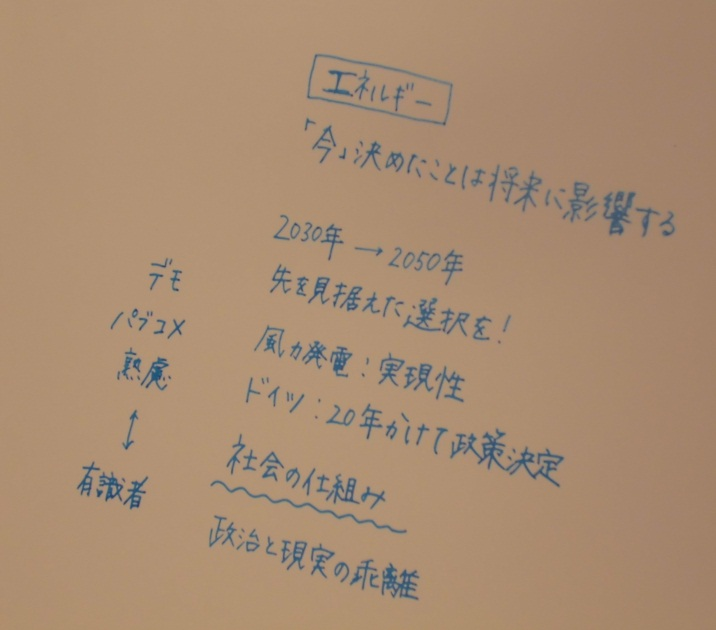 エネルギー
「今」決めたことは将来に影響する
2030年 → 2050年
先を見据えた選択を!
風力発電:実現性
ドイツ:20年かけて政策決定
社会の仕組み
政治と現実の乖離
デモ
パブコメ
熟慮
↕
有識者